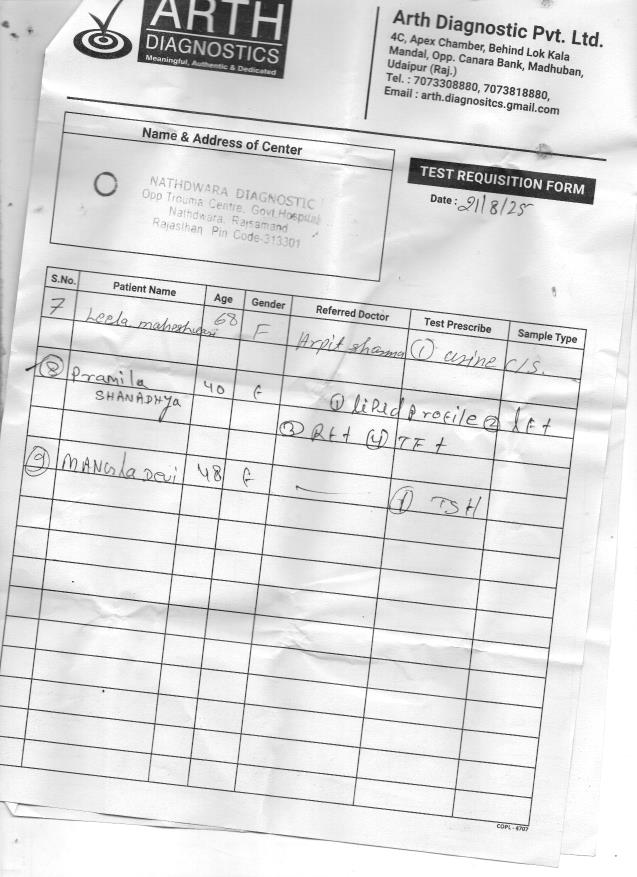 ARTH
DIAGNOSTICS
Meaningful, Authentic & Dedicated
Arth Diagnostic Pvt. Ltd.
4C, Apex Chamber, Behind Lok Kala
Mandal, Opp. Canara Bank, Madhuban,
Udaipur (Raj.)
Tel. : 7073308880, 7073818880,
Email : arth.diagnositcs.gmail.com
Name & Address of Center
NATHDWARA DIAGNOSTIC
Opp Trouma Centre, Govt.Hospital
Nathdwara, Rajsamand
Rajasthan Pin Code-313301
TEST REQUISITION FORM
Date : 21/8/25
S.No. Patient Name Age Gender Referred Doctor Test Prescribe Sample Type
7 Leela maheshwari 68 F Arpit sharma ① urine c/s.
⑧ Pramila SHANADHYA 40 F ① LiPid Profile ② LFt
③ RFt ④ TFt
⑨ MANGLA Devi 48 F ① TSH
COPL - 4707